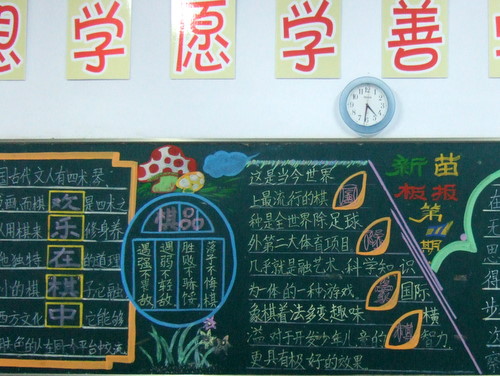 想 学 愿 学 善
国古代文人有四术琴
画而棋 欢 是四术之
以用棋来 乐 修身养
独特 在 的道理
棋
西方文化 中 它能够
棋品
落子不悔棋
胜败不骄馁
遇弱不轻敌
遇强不畏敌
这是当今世界
上最流行的棋 国
种是全世界除足球
外第二大体育项目 际
几乎就是融艺术、科学知识
为一体的一种游戏 象 国际
象棋着法多变趣味 棋 横
溢对于开发少年儿童的智力
更具有极好的效果
新苗
板报
第
期